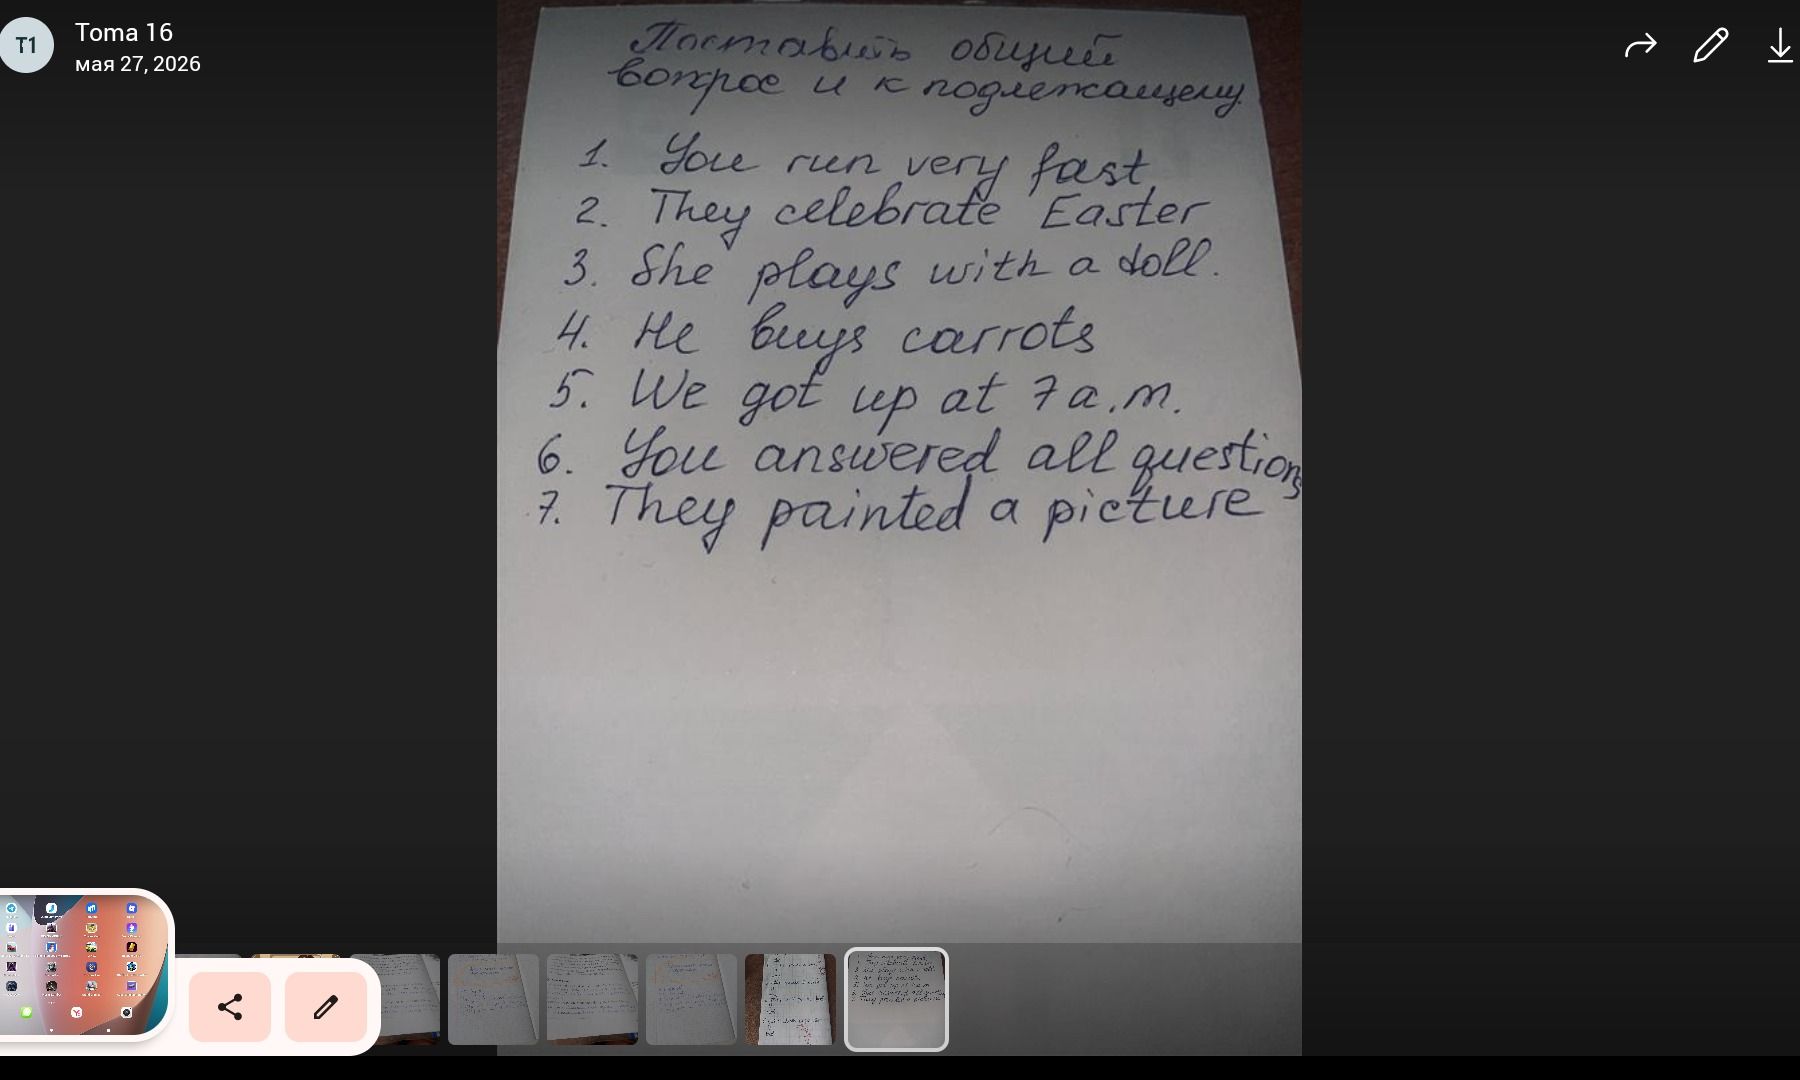 T1
Toma 16
мая 27, 2026
Поставить общий
вопрос и к подлежащему.
1. You run very fast
2. They celebrate Easter
3. She plays with a doll.
4. He buys carrots
5. We got up at 7 a.m.
6. You answered all questions
7. They painted a picture